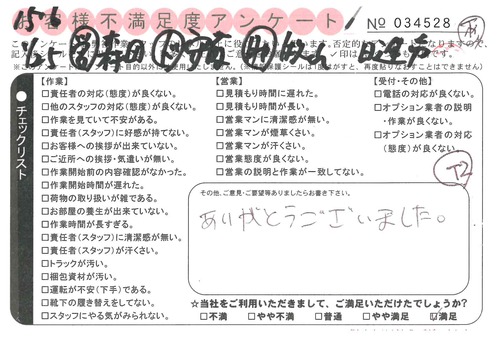 お客様不満足度アンケート
No 034528
【作業】
□責任者の対応(態度)が良くない。
□他のスタッフの対応(態度)が良くない。
□作業を見ていて不安がある。
□責任者(スタッフ)に好感が持てない。
□お客様への挨拶が出来ていない。
□ご近所への挨拶・気遣いが無い。
□作業開始前の内容確認がなかった。
□作業開始時間が遅れた。
□荷物の取り扱いが雑である。
□お部屋の養生が出来ていない。
□作業時間が長すぎる。
□責任者(スタッフ)に清潔感が無い。
□責任者(スタッフ)が汗くさい。
□トラックが汚い。
□梱包資材が汚い。
□運転が不安(下手)である。
□靴下の履き替えをしてない。
□スタッフにやる気がみられない。
【営業】
□見積もり時間に遅れた。
□見積もり時間が長い。
□営業マンに清潔感が無い。
□営業マンが煙草くさい。
□営業マンが汗くさい。
□営業態度が良くない。
□営業の説明と作業が一致してない。
【受付・その他】
□電話の対応が良くない。
□オプション業者の説明
・作業が良くない。
□オプション業者の対応
(態度)が良くない。
チェックリスト
その他、ご意見・ご要望等ありましたらお書き下さい。
ありがとうございました。
☆当社をご利用いただきまして、ご満足いただけたでしょうか?
□不満 □やや不満 □普通 □やや満足 ☑満足